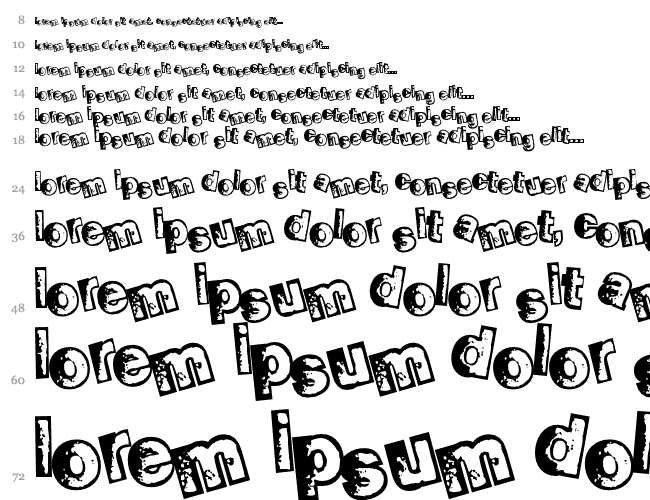 8 lorem ipsum dolor sit amet, consectetuer adipiscing elit...
10 lorem ipsum dolor sit amet, consectetuer adipiscing elit...
12 lorem ipsum dolor sit amet, consectetuer adipiscing elit...
14 lorem ipsum dolor sit amet, consectetuer adipiscing elit...
16 lorem ipsum dolor sit amet, consectetuer adipiscing elit...
18 lorem ipsum dolor sit amet, consectetuer adipiscing elit...
24 lorem ipsum dolor sit amet, consectetuer adipis
36 lorem ipsum dolor sit amet, cons
48 lorem ipsum dolor sit am
60 lorem ipsum dolor s
72 lorem ipsum dol